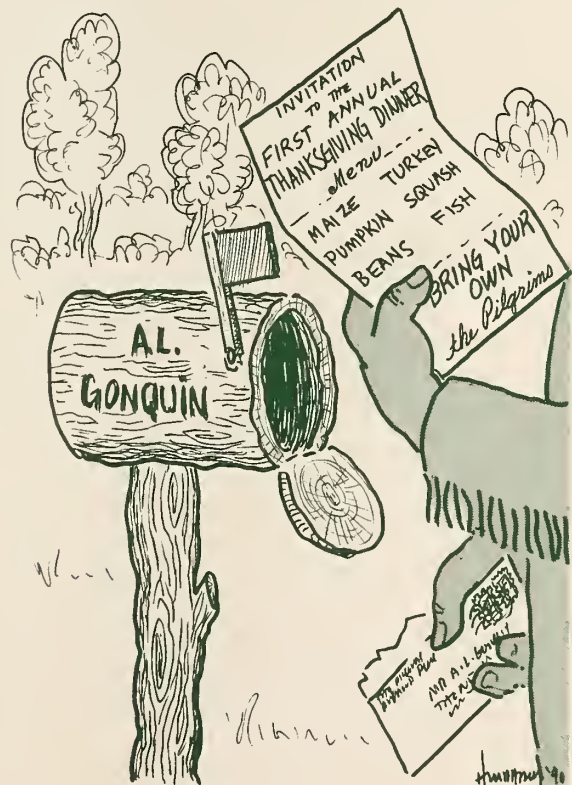 INVITATION
TO THE
FIRST ANNUAL
THANKSGIVING DINNER
Menu
MAIZE TURKEY
PUMPKIN SQUASH
BEANS FISH
BRING YOUR
OWN
the Pilgrims
A.L.
GONQUIN
MR A.L.
'90